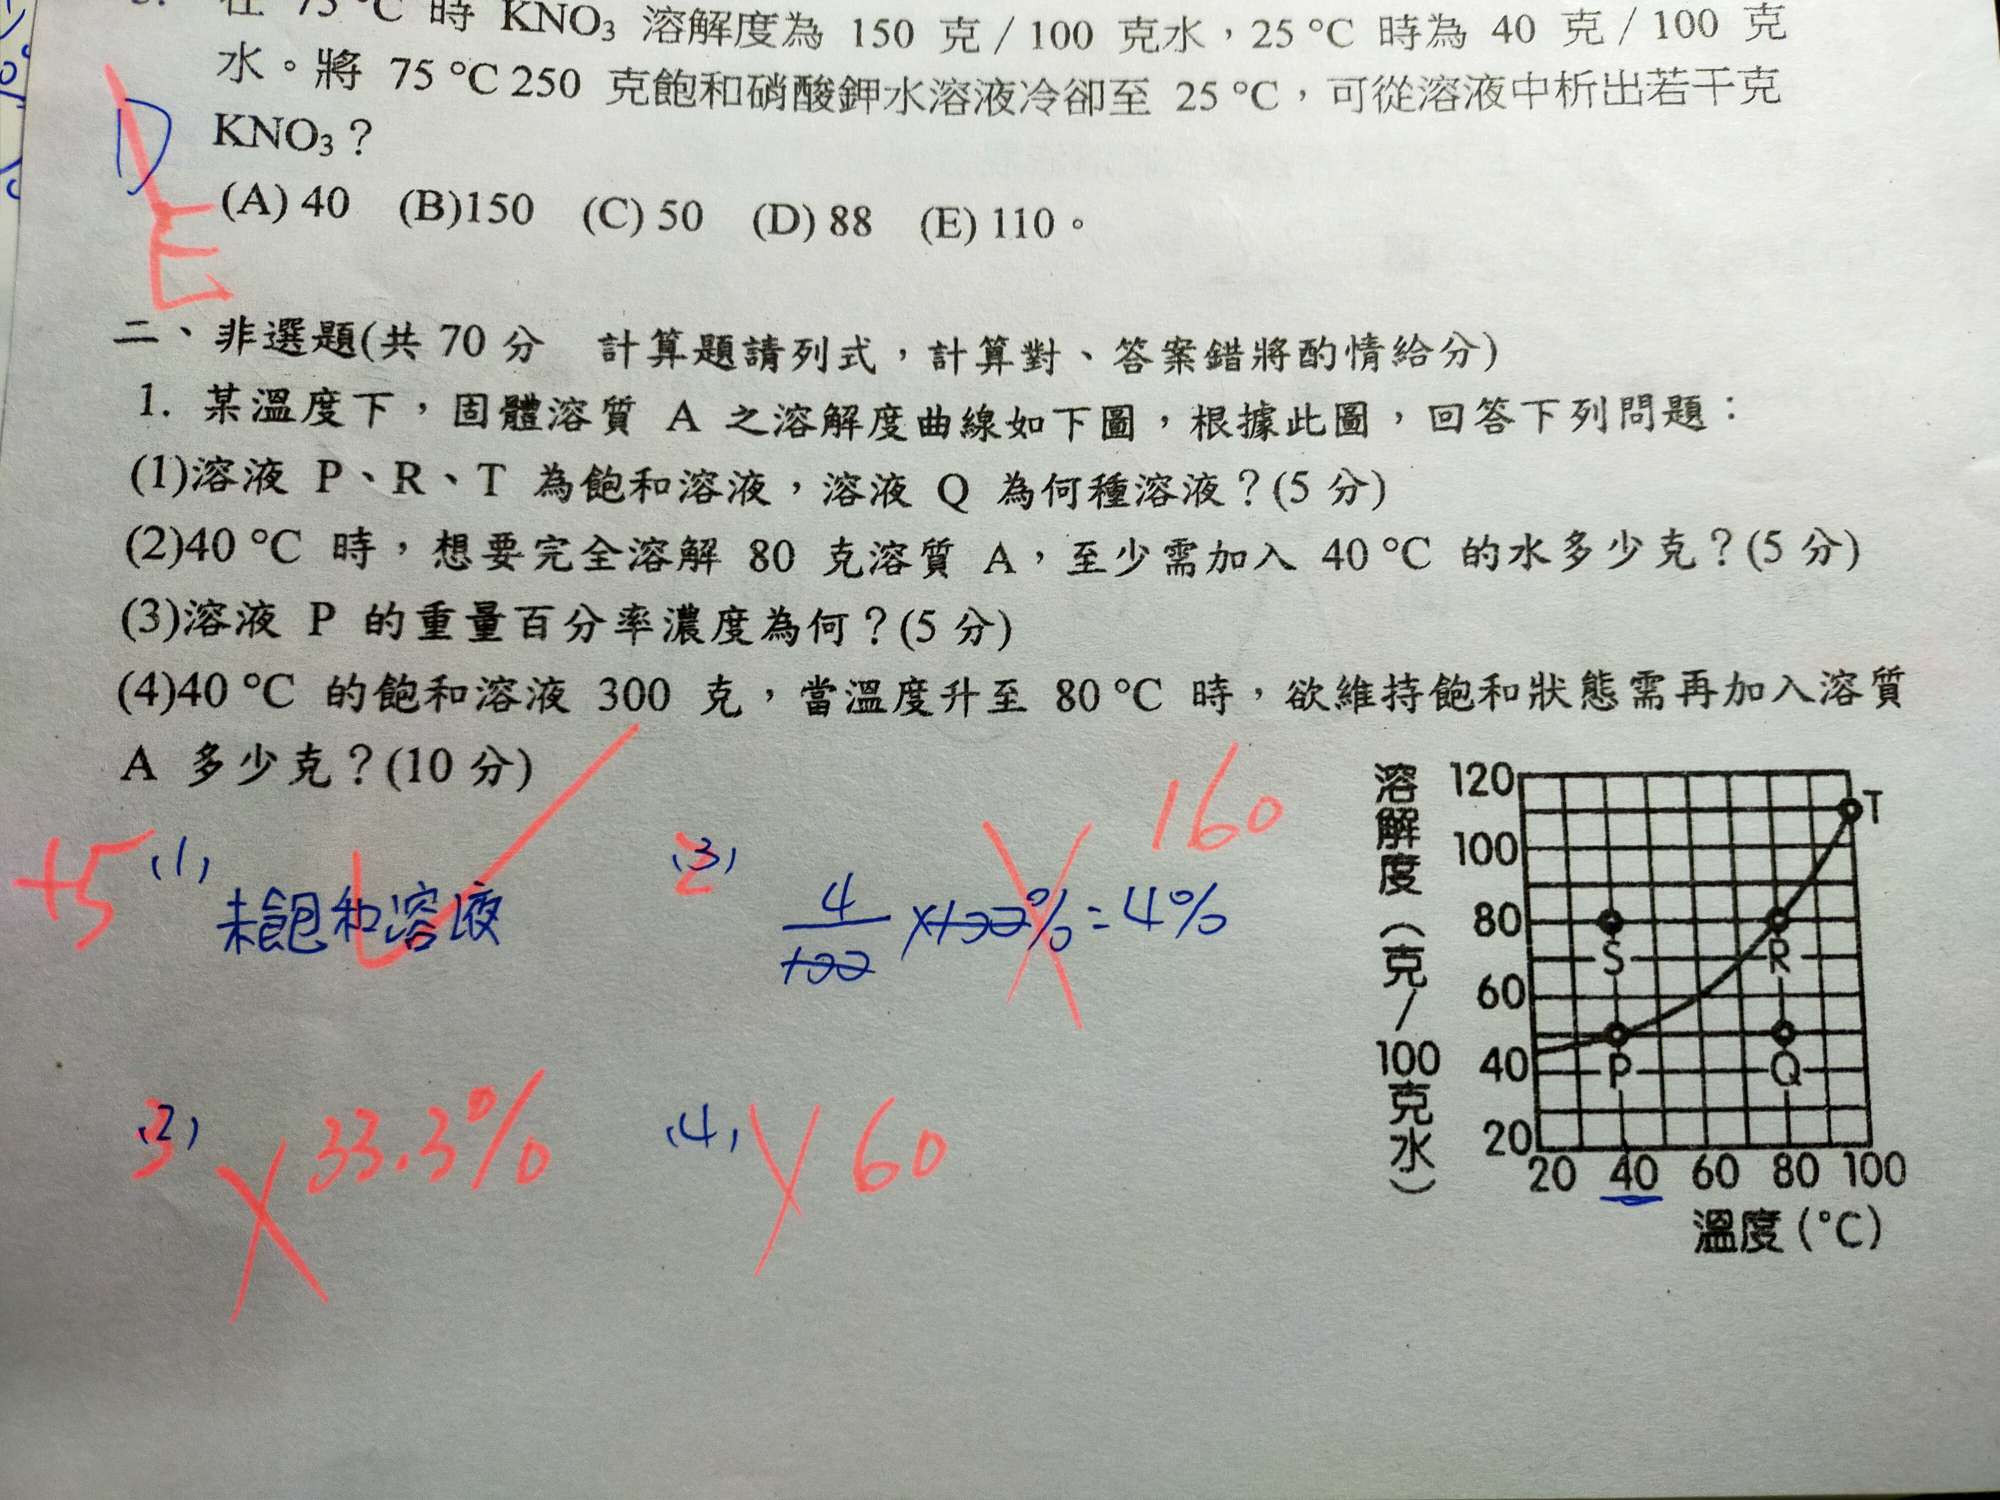 在 75 °C 時 KNO₃ 溶解度為 150 克/100 克水，25 °C 時為 40 克/100 克
水。將 75 °C 250 克飽和硝酸鉀水溶液冷卻至 25 °C，可從溶液中析出若干克
KNO₃？
D
(A) 40 (B)150 (C) 50 (D) 88 (E) 110。
E
二、非選題(共 70 分 計算題請列式，計算對、答案錯將酌情給分)
1. 某溫度下，固體溶質 A 之溶解度曲線如下圖，根據此圖，回答下列問題：
(1)溶液 P、R、T 為飽和溶液，溶液 Q 為何種溶液？(5 分)
(2)40 °C 時，想要完全溶解 80 克溶質 A，至少需加入 40 °C 的水多少克？(5 分)
(3)溶液 P 的重量百分率濃度為何？(5 分)
(4)40 °C 的飽和溶液 300 克，當溫度升至 80 °C 時，欲維持飽和狀態需再加入溶質
A 多少克？(10 分)
+5 (1) 未飽和溶液
(3) 2 4/100 ×100%=4% 160
(2) 3 33.3%
(4) 60
溶解度（克/100克水）
120
100
80
60
40
20
T
S
R
P
Q
20 40 60 80 100
溫度(°C)